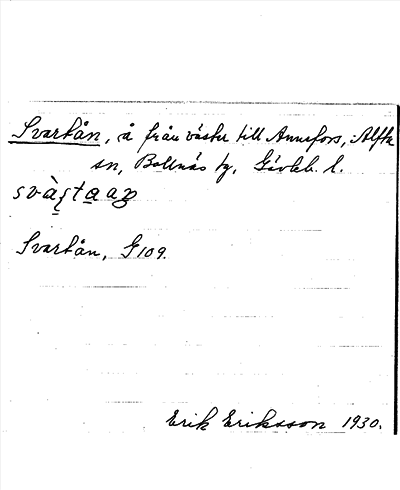 Svartån, å från väster till Annefors, i Alfta
sn, Bollnäs tg, Gävleb. l.
Svartån, G109.
Erik Eriksson 1930.